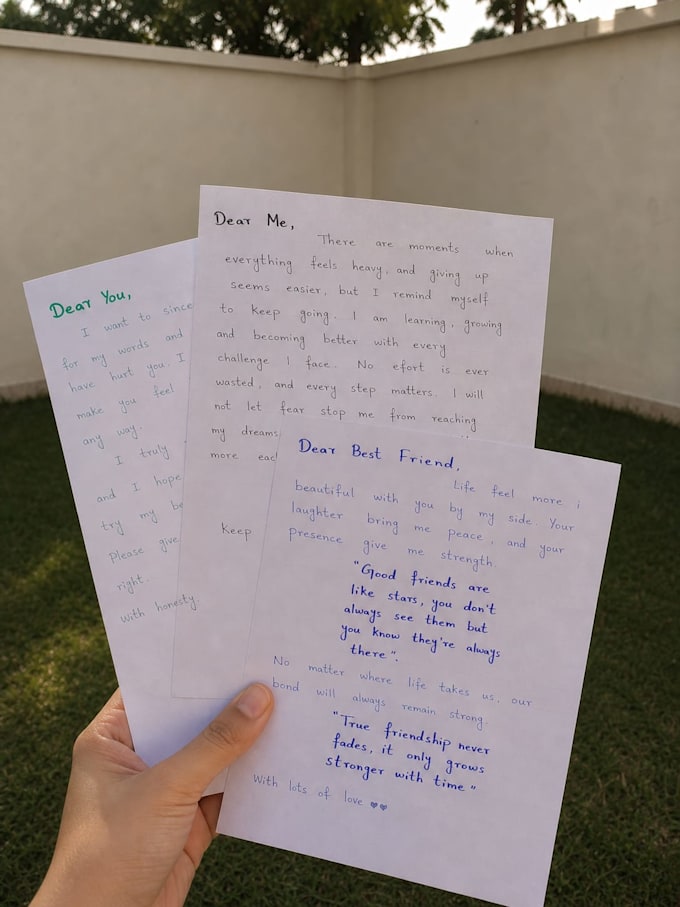 Dear You,
I want to since
for my words and
have hurt you. I
make you feel
any way.
I truly
and I hope
try my be
Please give
right.
With honesty
Dear Me,
There are moments when
everything feels heavy, and giving up
seems easier, but I remind myself
to keep going. I am learning, growing
and becoming better with every
challenge I face. No efort is ever
wasted, and every step matters. I will
not let fear stop me from reaching
my dreams
more eac
Keep
Dear Best Friend,
Life feel more i
beautiful with you by my side. Your
laughter bring me peace, and your
presence give me strength
"Good friends are
like stars, you don't
always see them but
you know they're always
there".
No matter where life takes us, our
bond will always remain strong.
"True friendship never
fades, it only grows
stronger with time"
With lots of love ♥♥